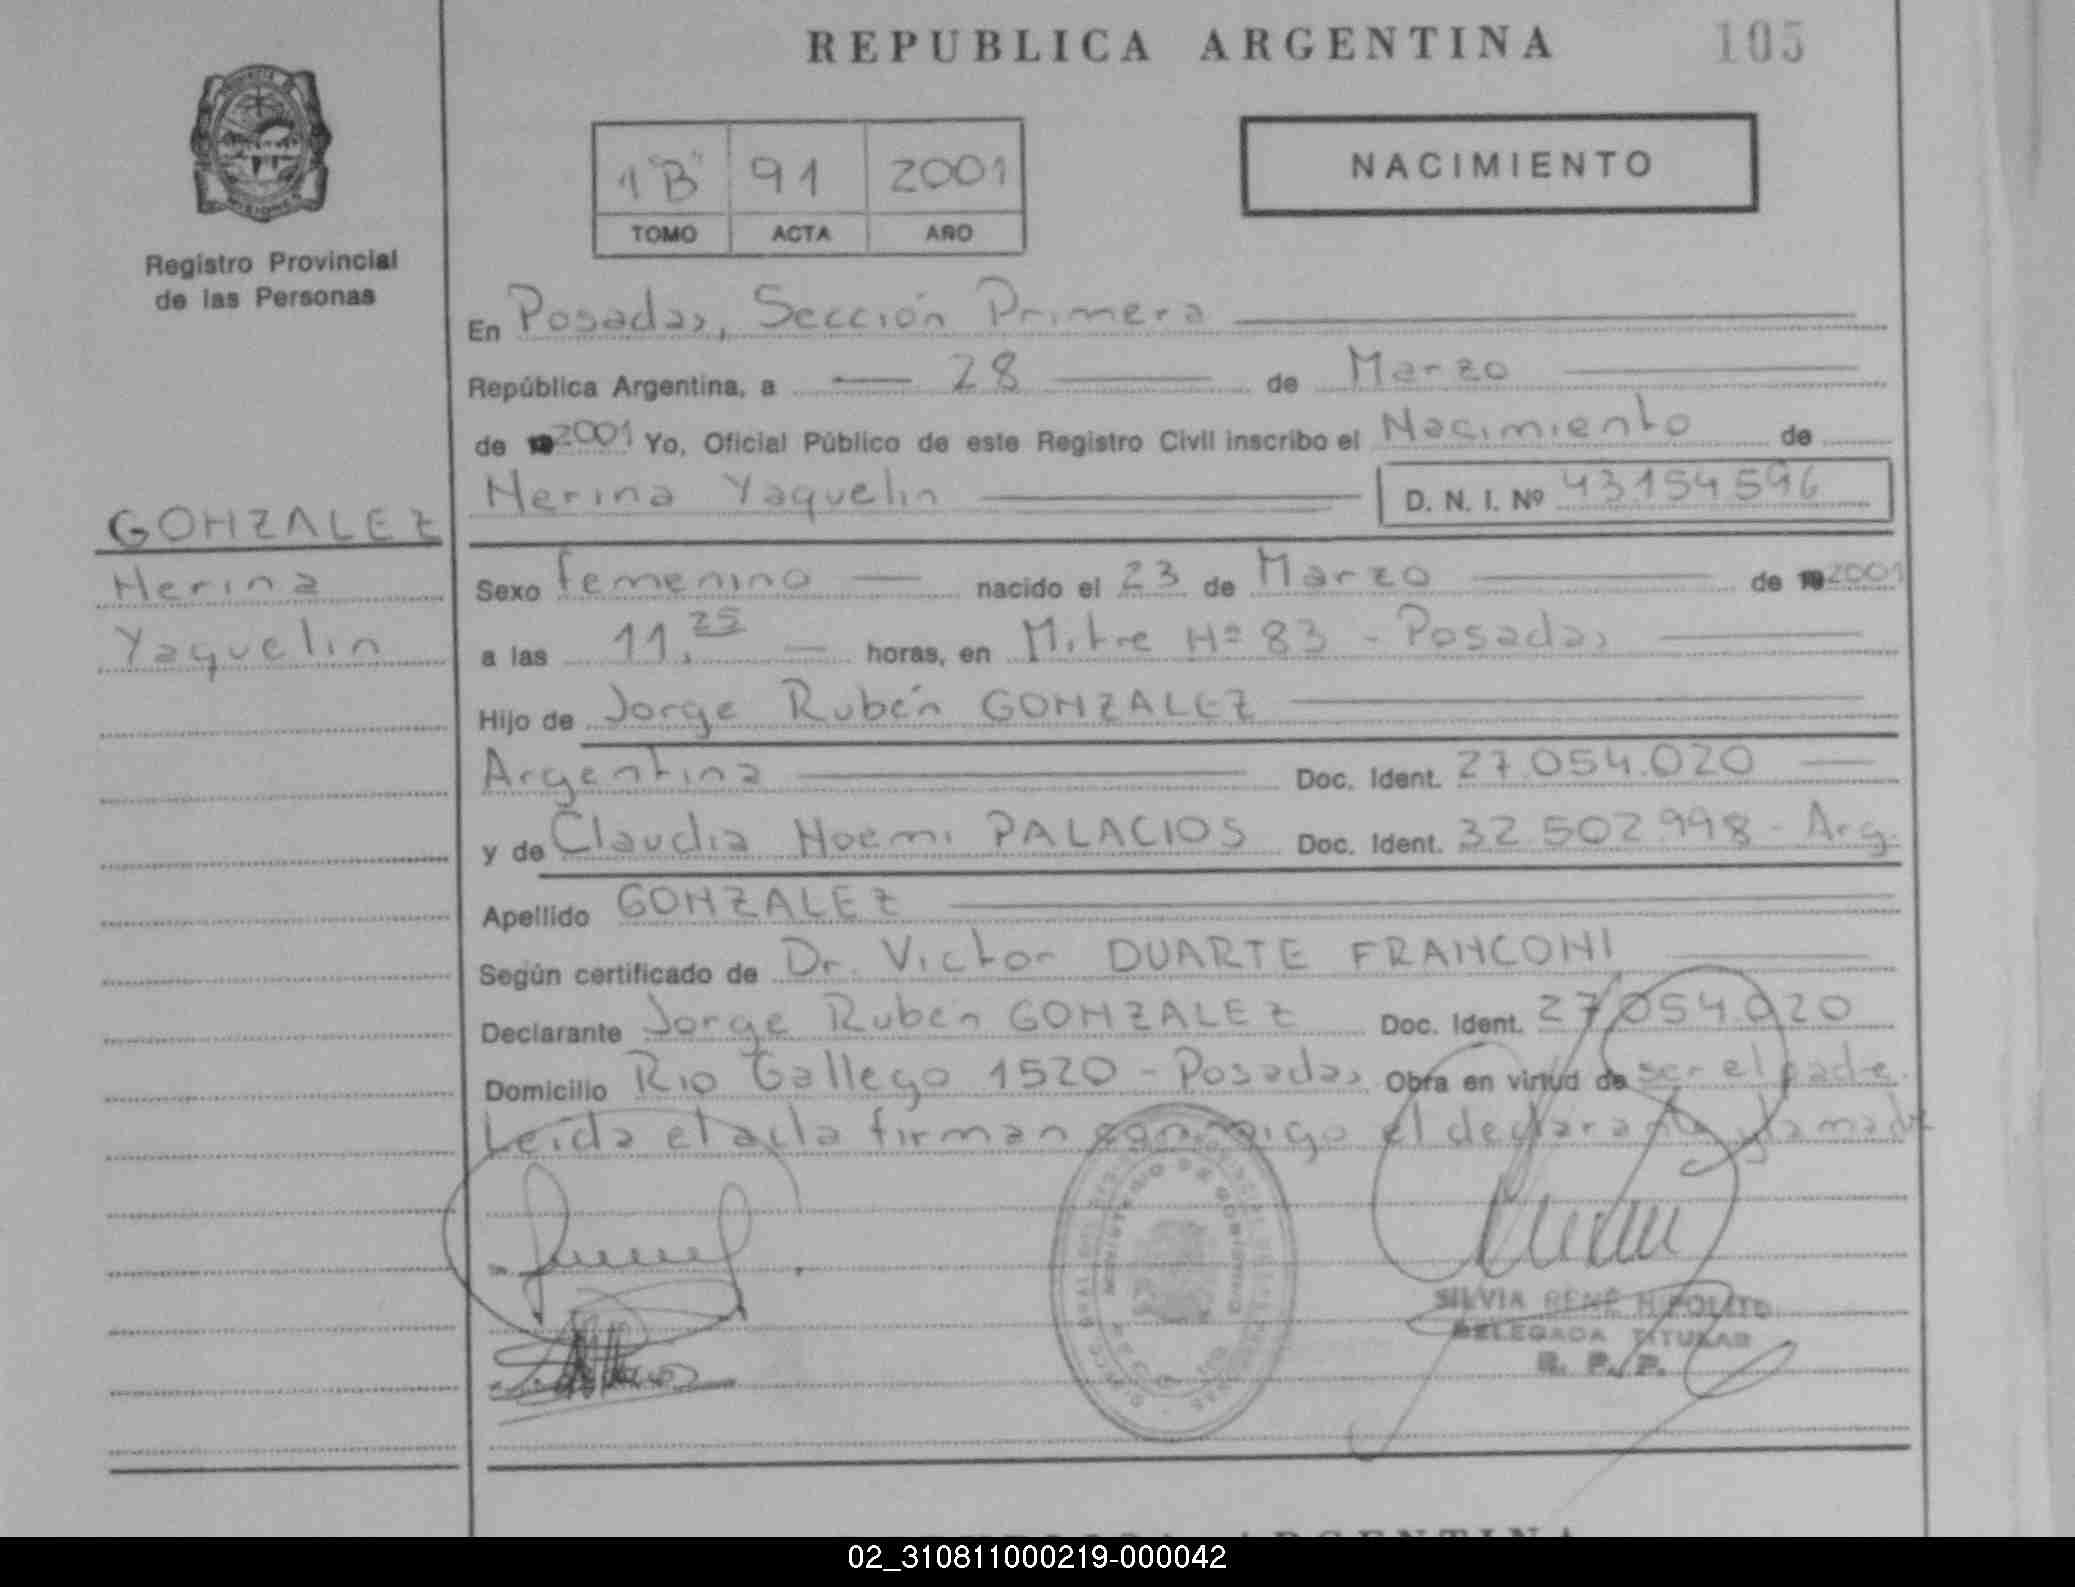 REPUBLICA ARGENTINA
105
Registro Provincial
de las Personas
1"B" 91 2001
TOMO ACTA AÑO
NACIMIENTO
En Posadas, Sección Primera
República Argentina, a 28 de Marzo
de 2001 Yo, Oficial Público de este Registro Civil inscribo el Nacimiento de
Nerina Yaquelin D. N. I. Nº 43154596
GONZALEZ
Nerina
Yaquelin
Sexo femenino nacido el 23 de Marzo de 2001
a las 11,25 horas, en Mitre Nº 83 - Posadas
Hijo de Jorge Rubén GONZALEZ
Argentina Doc. Ident. 27.054.020
y de Claudia Noemi PALACIOS Doc. Ident. 32.502.998 - Arg.
Apellido GONZALEZ
Según certificado de Dr. Victor DUARTE FRANCONI
Declarante Jorge Rubén GONZALEZ Doc. Ident. 27.054.020
Domicilio Rio Gallego 1520 - Posadas Obra en virtud de ser el padre.
Leída el acta firman conmigo el declarante y la madre
MINISTERIO DE GOBIERNO
SILVIA RENÉ HIPOLITO
DELEGADA TITULAR
R. P. P.
REPUBLICA ARGENTINA
02_310811000219-000042